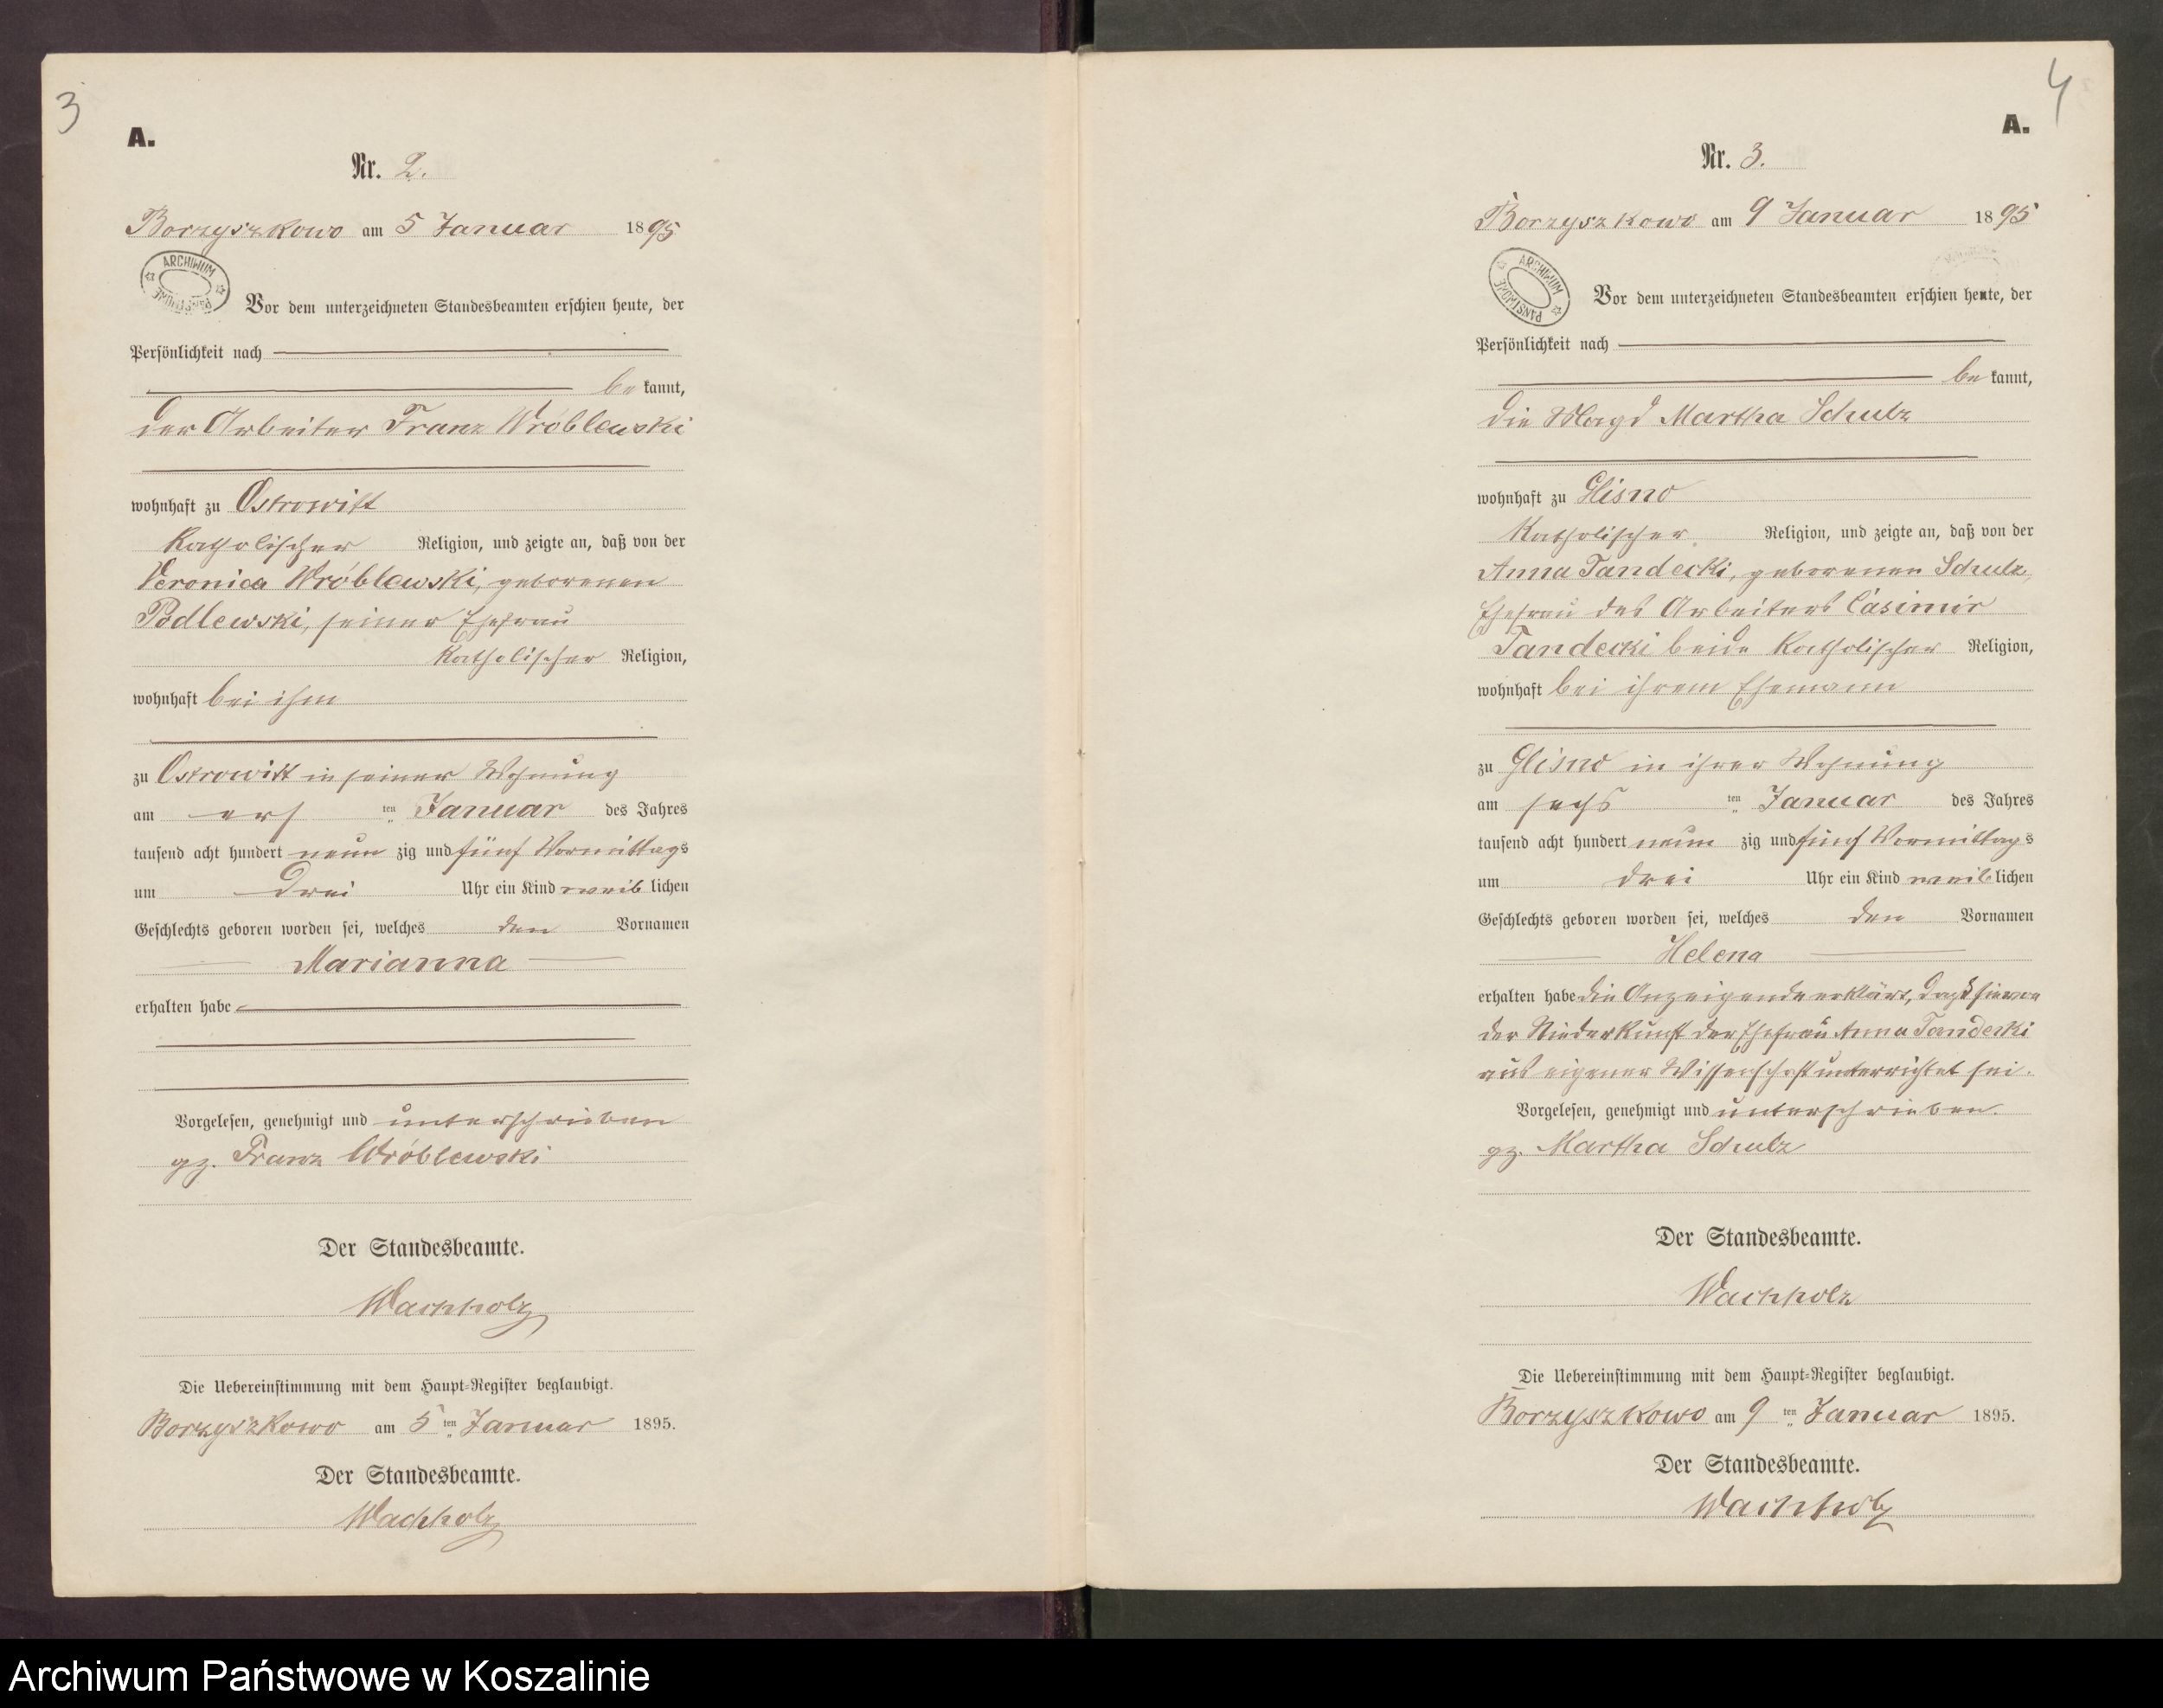 3
A.
Nr. 2.
Borzyszkowo am 5 Januar 1895
ARCHIWUM PAŃSTWOWE
Vor dem unterzeichneten Standesbeamten erschien heute, der
Persönlichkeit nach
be kannt,
der Arbeiter Franz Wróblewski
wohnhaft zu Ostrowitt
Katholischer Religion, und zeigte an, daß von der
Veronica Wróblewski, geborenen
Podlewski, seiner Ehefrau
Katholischer Religion,
wohnhaft bei ihm
zu Ostrowitt in seiner Wohnung
am ers ten Januar des Jahres
tausend acht hundert neun zig und fünf Vormittags
um drei Uhr ein Kind weib lichen
Geschlechts geboren worden sei, welches den Vornamen
Marianna
erhalten habe
Vorgelesen, genehmigt und unterschrieben
gz. Franz Wróblewski
Der Standesbeamte.
Wachholz
Die Uebereinstimmung mit dem Haupt-Register beglaubigt.
Borzyszkowo am 5 ten Januar 1895.
Der Standesbeamte.
Wachholz
4
A.
Nr. 3.
Borzyszkowo am 9 Januar 1895
ARCHIWUM PAŃSTWOWE
Vor dem unterzeichneten Standesbeamten erschien heute, der
Persönlichkeit nach
be kannt,
die Magd Martha Schulz
wohnhaft zu Glisno
Katholischer Religion, und zeigte an, daß von der
Anna Tandecki, geborenen Schulz,
Ehefrau des Arbeiters Casimir
Tandecki beide Katholischer Religion,
wohnhaft bei ihrem Ehemann
zu Glisno in ihrer Wohnung
am sechs ten Januar des Jahres
tausend acht hundert neun zig und fünf Vormittags
um drei Uhr ein Kind weib lichen
Geschlechts geboren worden sei, welches den Vornamen
Helena
erhalten habe die Anzeigende erklärt, daß sie von
der Niederkunft der Ehefrau Anna Tandecki
aus eigener Wissenschaft unterrichtet sei.
Vorgelesen, genehmigt und unterschrieben.
gz. Martha Schulz
Der Standesbeamte.
Wachholz
Die Uebereinstimmung mit dem Haupt-Register beglaubigt.
Borzyszkowo am 9 ten Januar 1895.
Der Standesbeamte.
Wachholz
Archiwum Państwowe w Koszalinie